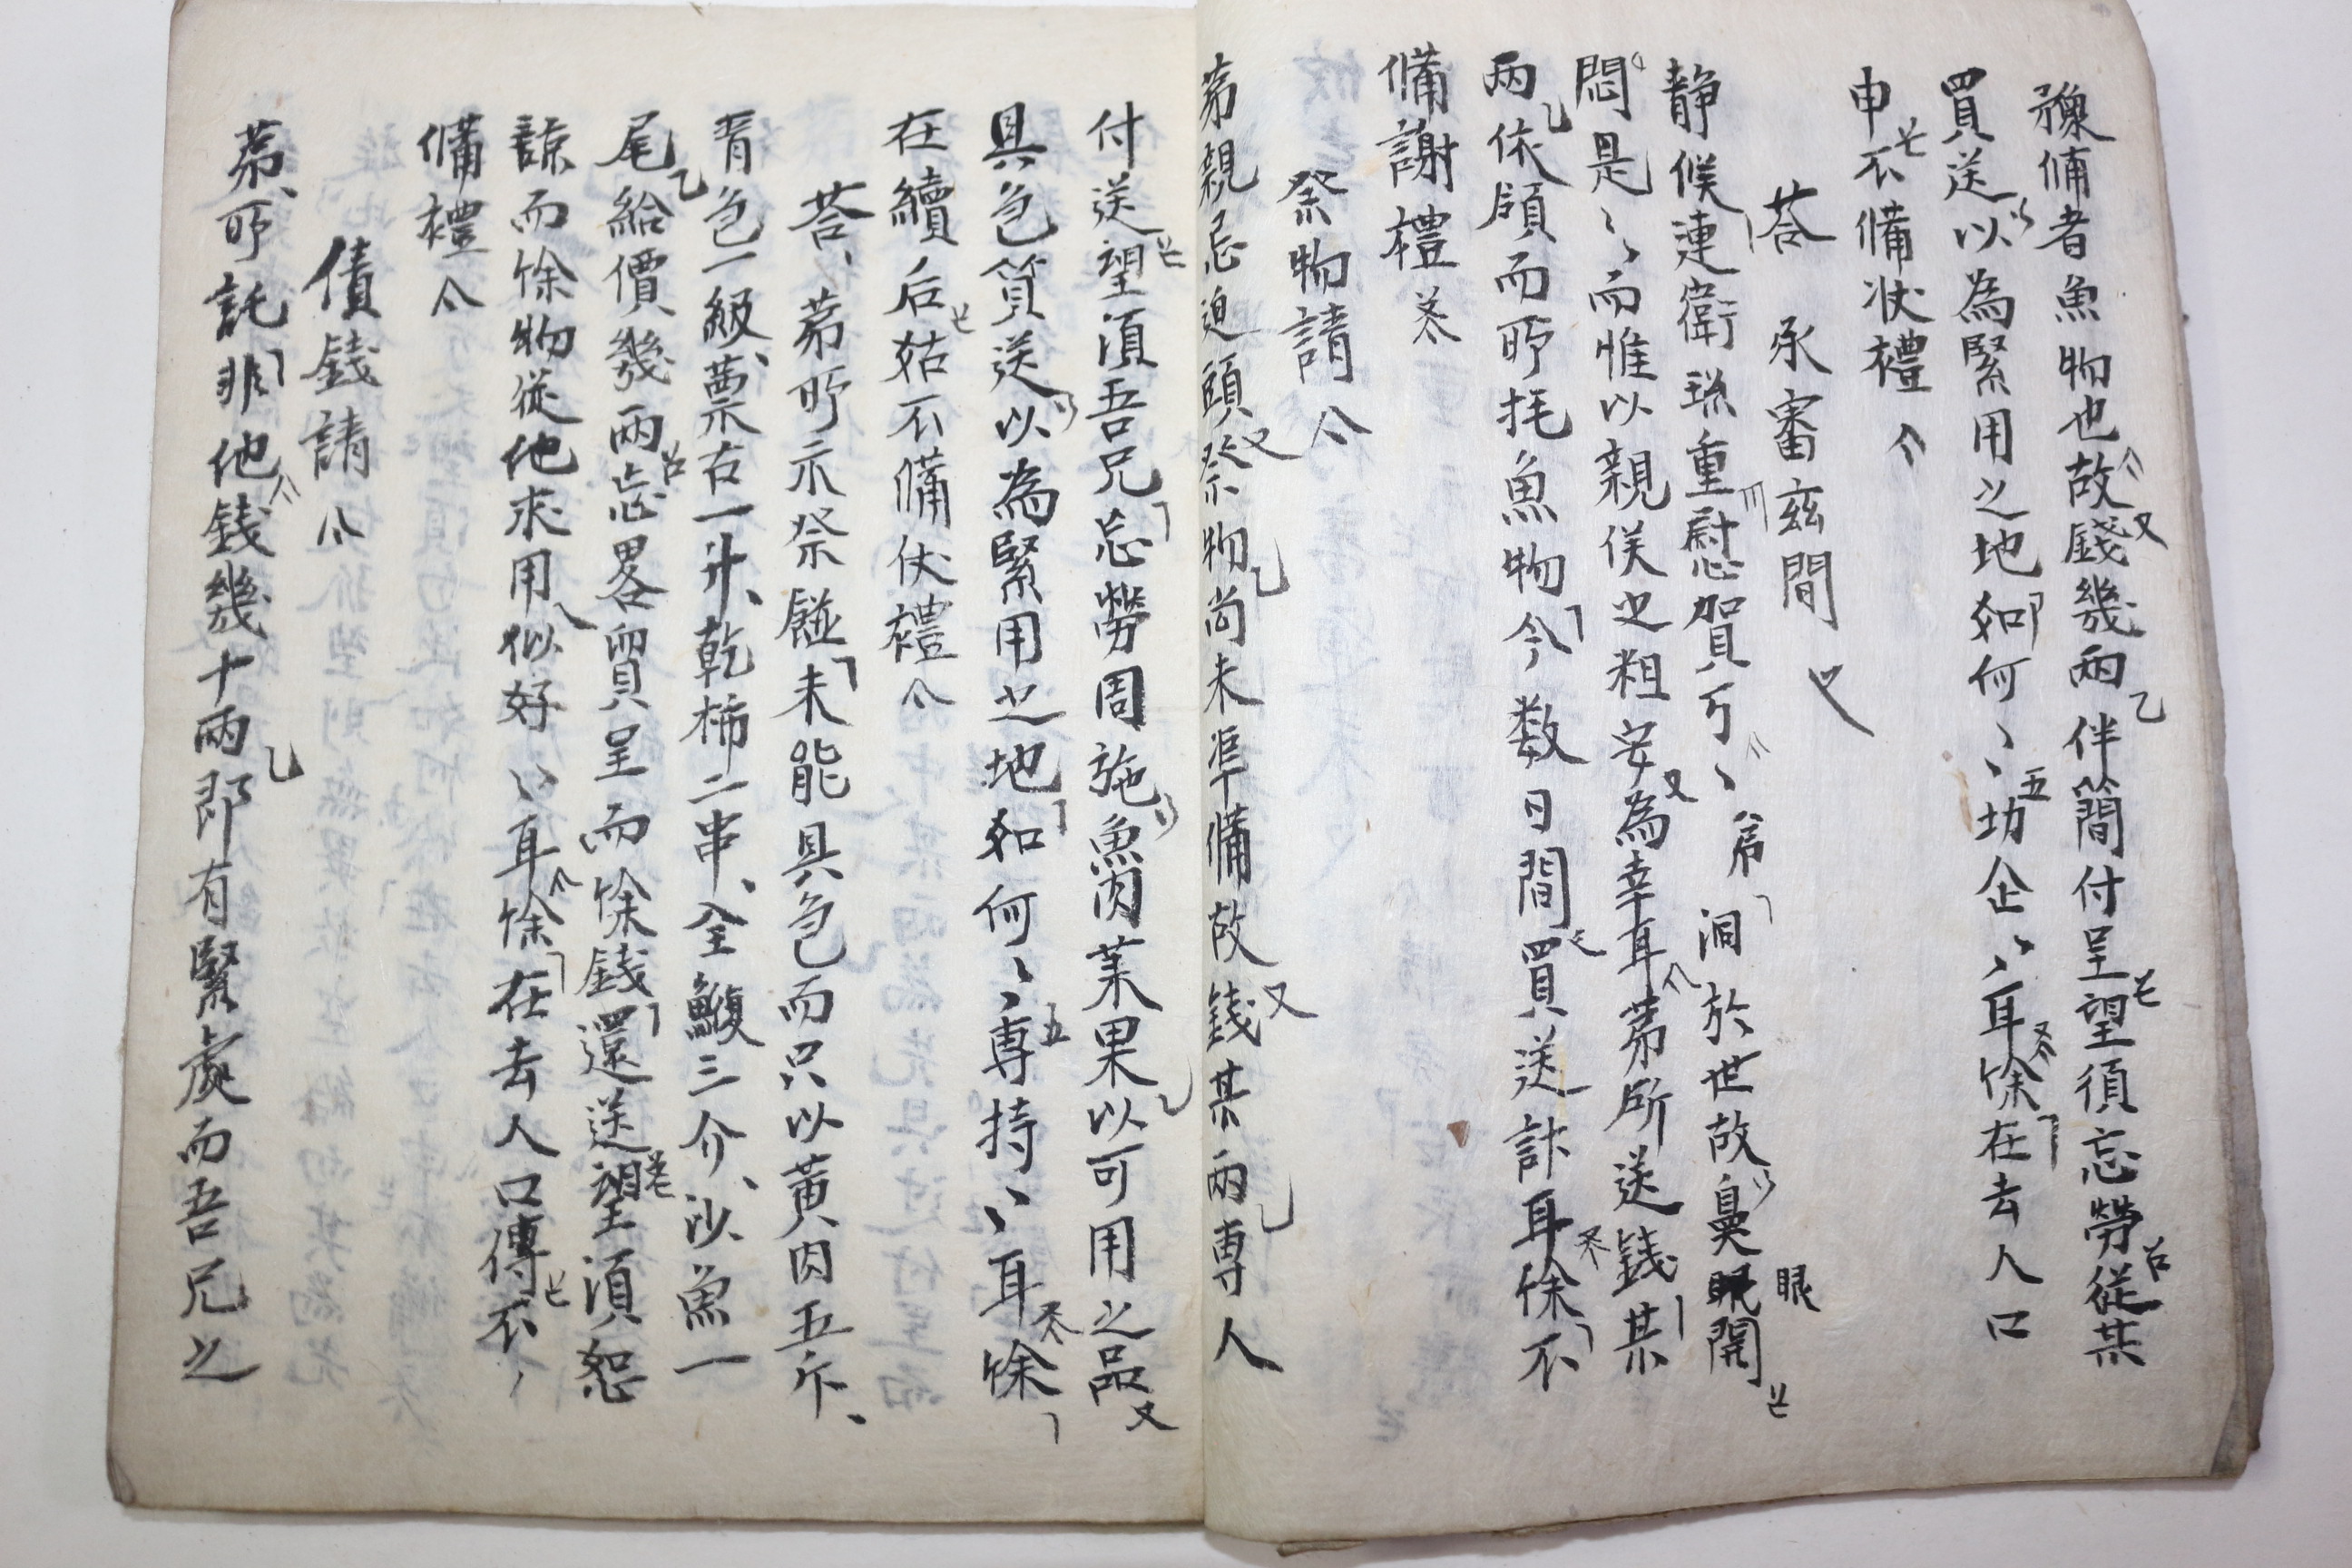 豫備者魚物也故錢幾兩伴簡付呈望須忘勞從某
買送以為緊用之地如何〻坊企〻耳餘在去人口
申不備狀禮
答 承審玆間
靜候連衛珎重慰賀万〻弟洞於世故鼻眼開
眼
悶是〻而惟以親候之粗安為幸耳弟所送錢某
兩依領而所托魚物今数日間買送計耳餘不
備謝禮
祭物請
弟親忌迫頭祭物尚未準備故錢某兩専人
付送望須吾兄忘勞周施魚肉菓果以可用之品
具色貿送以為緊用之地如何〻専持〻耳餘
在續后姑不備伏禮
答弟所示祭饌未能具色而只以黄肉五斤
脊色一級藁古一升乾柿二串全鰒三介沙魚一
尾給價幾兩忘畧貿呈而餘錢還送望須恕
諒而餘物從他求用似好〻耳餘在去人口傳不
備禮
債錢請
弟所託非他錢幾十兩即有緊處而吾兄之